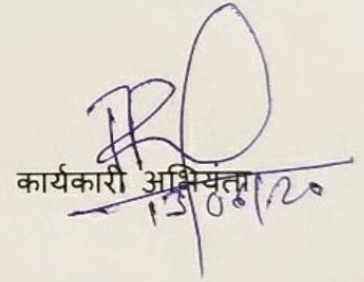 कार्यकारी अभियंता
13/06/20